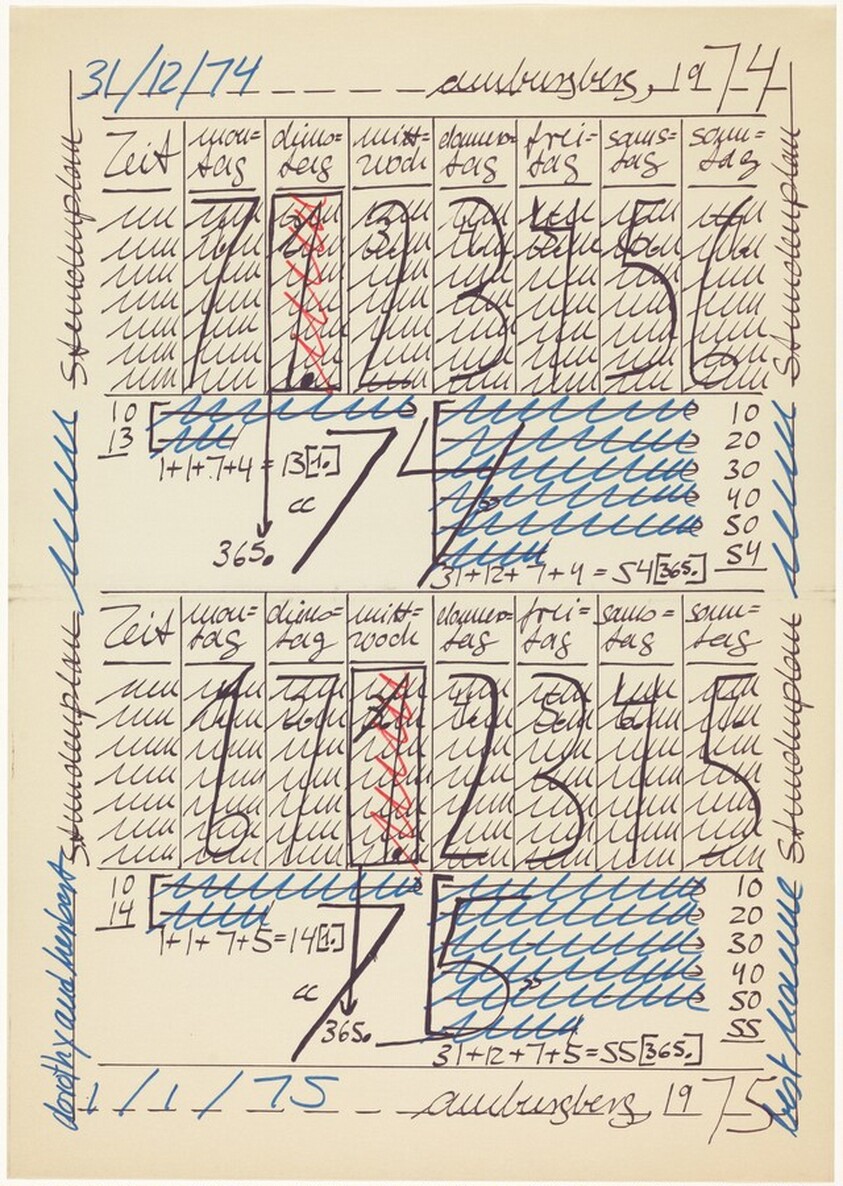 31/12/74 amburgberg, 1974
Stundenplan
Stundenplan
Zeit mon= diens= mitt= donners= frei= sams= sonn=
tag tag woch tag tag tag tag
7 1. 2 3 4 5 6
10 10
13 20
1+1+7+4=13[1.] 30
74
« 40
» 50
365. 54
31+12+7+4=54[365.]
Stundenplan
Stundenplan
Zeit mon= diens= mitt= donners= frei= sams= sonn=
tag tag woch tag tag tag tag
6 7 1. 2 3 4 5
10 10
14 20
1+1+7+5=14[1.] 30
75
40
« » 50
365. 55
31+12+7+5=55[365.]
dorothy and herbert
1/1/75 amburgberg, 1975